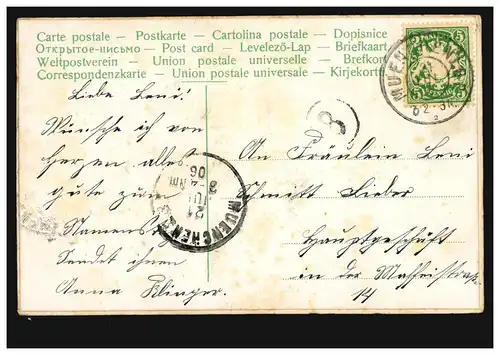 Carte postale – Postkarte – Cartolina postale – Dopisnice
Открытое-письмо – Post card – Levelező-Lap – Briefkaart
Weltpostverein – Union postale universelle – Brefkort
Correspondenzkarte – Union postale universale – Kirjekortti
5
5
5
MUENCHEN
8
Liebe Leni!
Wünsche ich von
Herzen alles
gute zum
Namenstag
Sendet ihnen
Anna Klinger.
MUENCHEN
21
JUL
06
An Fräulein Leni
Schmitt Lieber
Hauptgeschäft
in der Maffeistraße
14